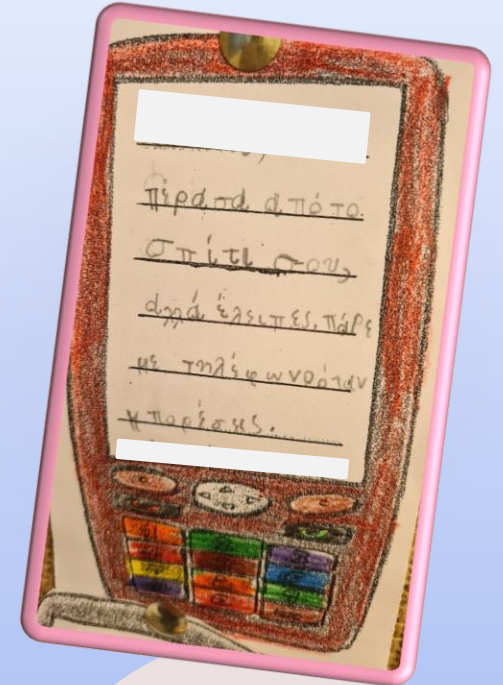 πέρασα από το
σπίτι σου,
αλλά έλειπες. πάρε
με τηλέφωνο όταν
μπορέσεις.